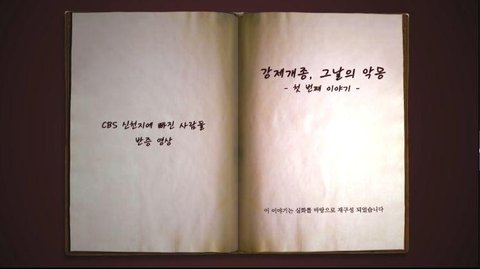 CBS 신천지에 빠진 사람들
반증 영상
강제개종, 그날의 악몽
- 첫 번째 이야기 -
이 이야기는 실화를 바탕으로 재구성 되었습니다